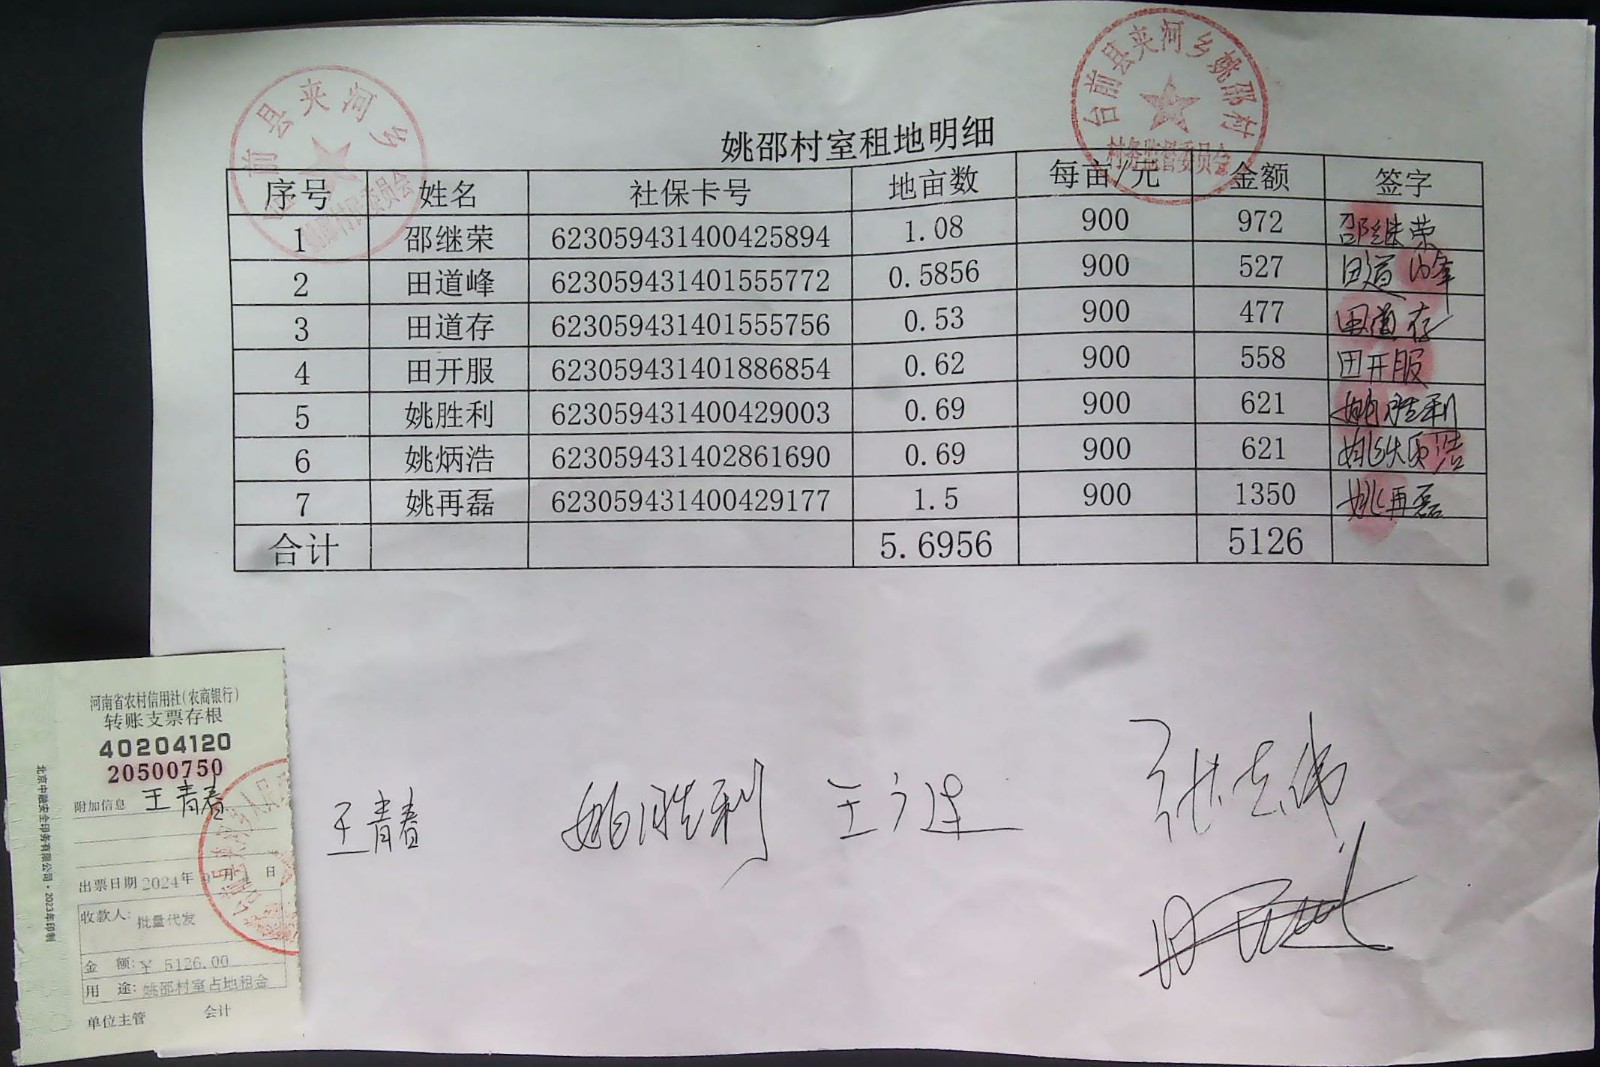 姚邵村室租地明细
序号 姓名 社保卡号 地亩数 每亩/元 金额 签字
1 邵继荣 623059431400425894 1.08 900 972 邵继荣
2 田道峰 623059431401555772 0.5856 900 527 田道峰
3 田道存 623059431401555756 0.53 900 477 田道存
4 田开服 623059431401886854 0.62 900 558 田开服
5 姚胜利 623059431400429003 0.69 900 621 姚胜利
6 姚炳浩 623059431402861690 0.69 900 621
7 姚再磊 623059431400429177 1.5 900 1350 姚再磊
合计 5.6956 5126
前县夹河乡
村民委员会
台前县夹河乡姚邵村
村务监督委员会
河南省农村信用社(农商银行)
转账支票存根
40204120
20500750
附加信息 王青春
出票日期 2024年 月 日
收款人: 批量代发
金 额: ¥ 5126.00
用 途: 姚邵村室占地租金
单位主管 会计
北京中融安全印务有限公司·2023年印制
王青春 姚胜利